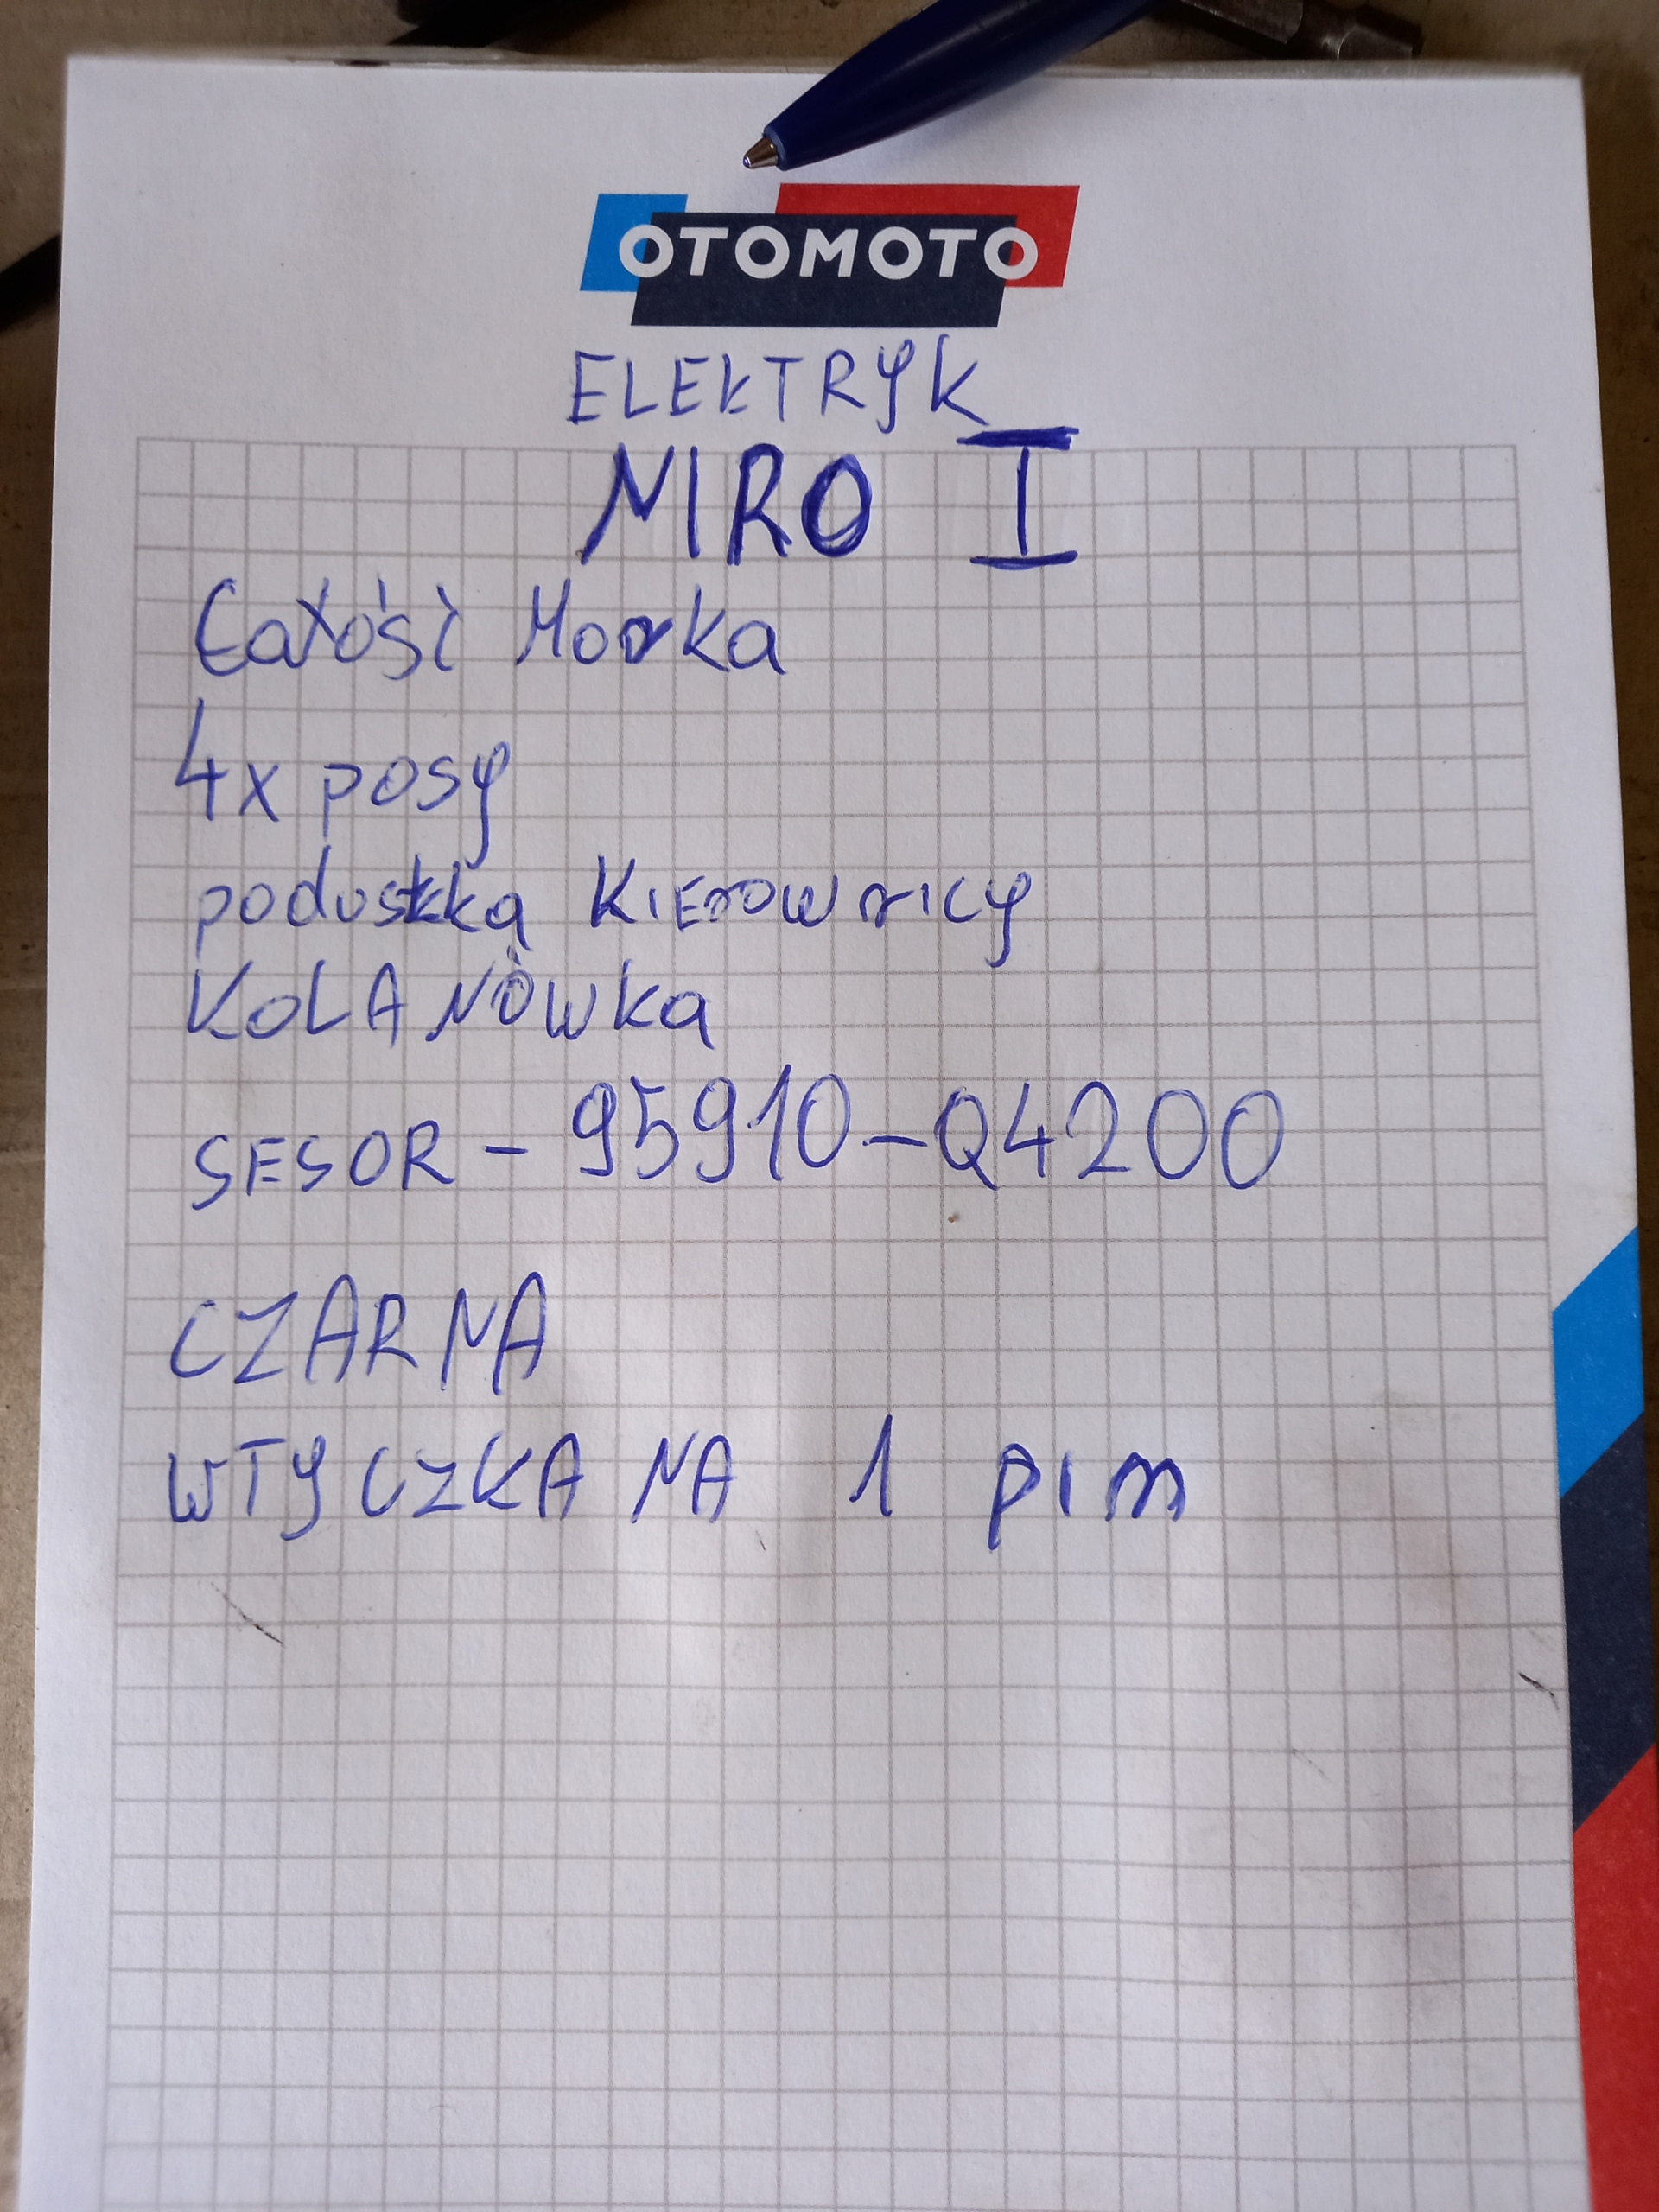 OTOMOTO
ELEKTRYK
NIRO I
Całość Morka
4x posy
poduszka KIErownicy
KOLANówka
SESOR - 95910-Q4200
CZARNA
WTYCZKA NA 1 pin